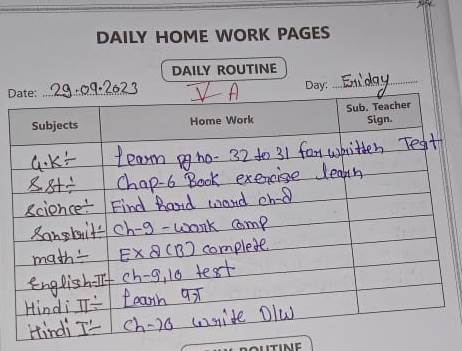 DAILY HOME WORK PAGES
DAILY ROUTINE
Date: 29.09.2023 V A Day: Friday
Subjects Home Work Sub. Teacher Sign.
G.K:- Learn pg no- 32 to 31 for written Test
S.St:- Chap-6 Book exercise learn
Science:- Find hard word ch-8
Sanskrit:- Ch-9 - work comp
math:- EX 8 (B) complete
English-II- ch-9,10 test
Hindi II:- Learn
Hindi I:- Ch-10 write D/W
ROUTINE